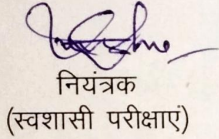 नियंत्रक
(स्वशासी परीक्षाएं)